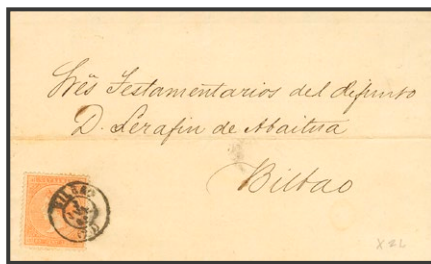 Sres Testamentarios del difunto
D. Serafin de Abaitua
Bilbao
BILBAO